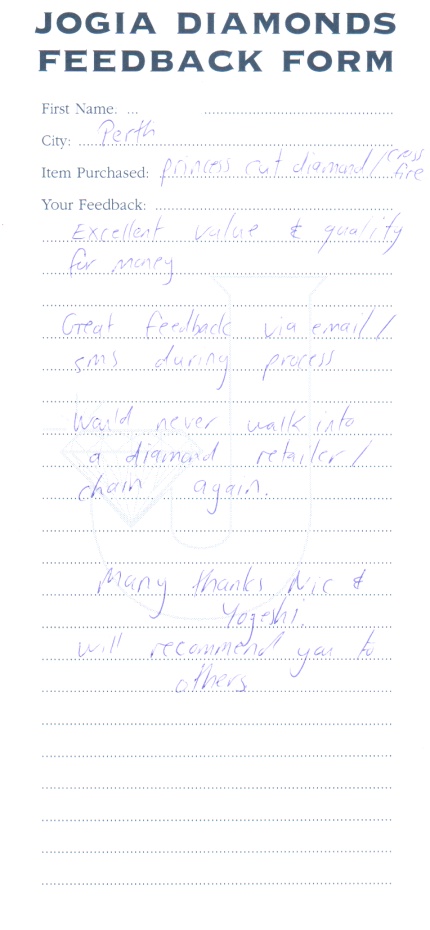 JOGIA DIAMONDS
FEEDBACK FORM
First Name:
City: Perth
Item Purchased: princess cut diamond/cross
fire
Your Feedback:
Excellent value & quality
for money
Great feedback via email/
sms during process
Would never walk into
a diamond retailer/
chain again.
Many thanks Nic &
Yogeshi.
will recommend you to
others